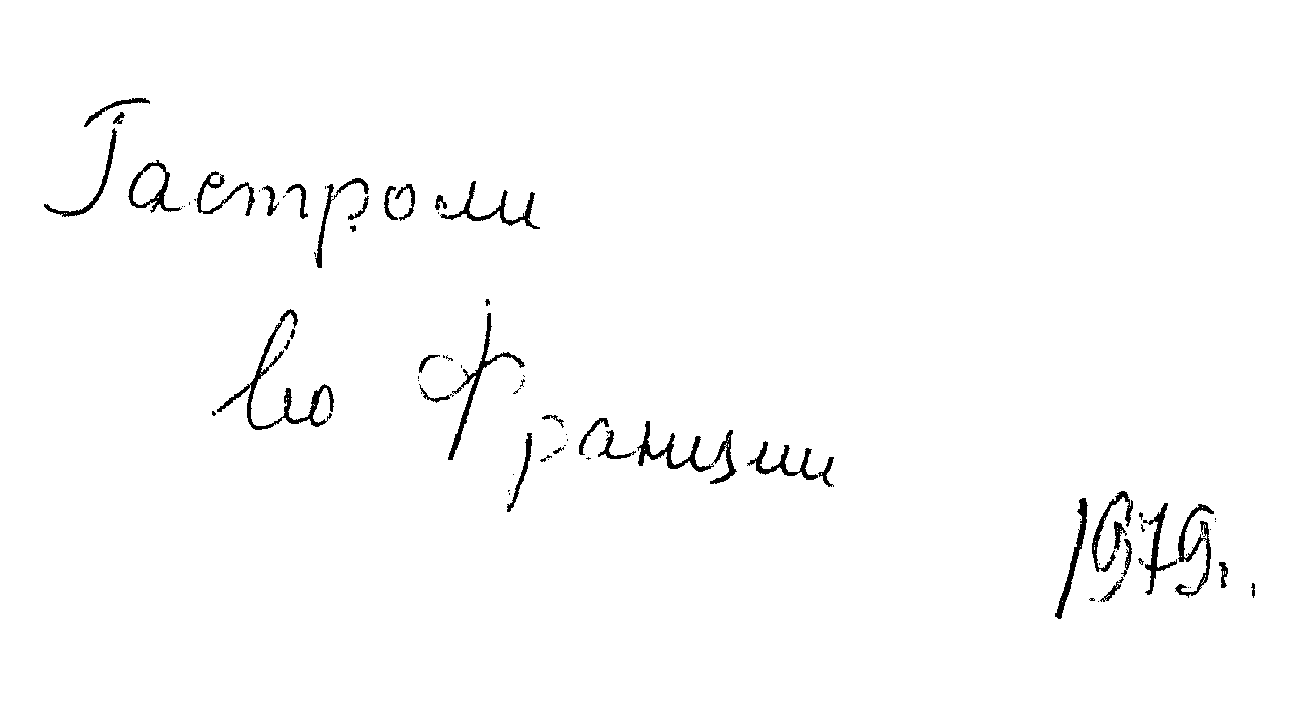 Гастроли
во Франции
1979г.